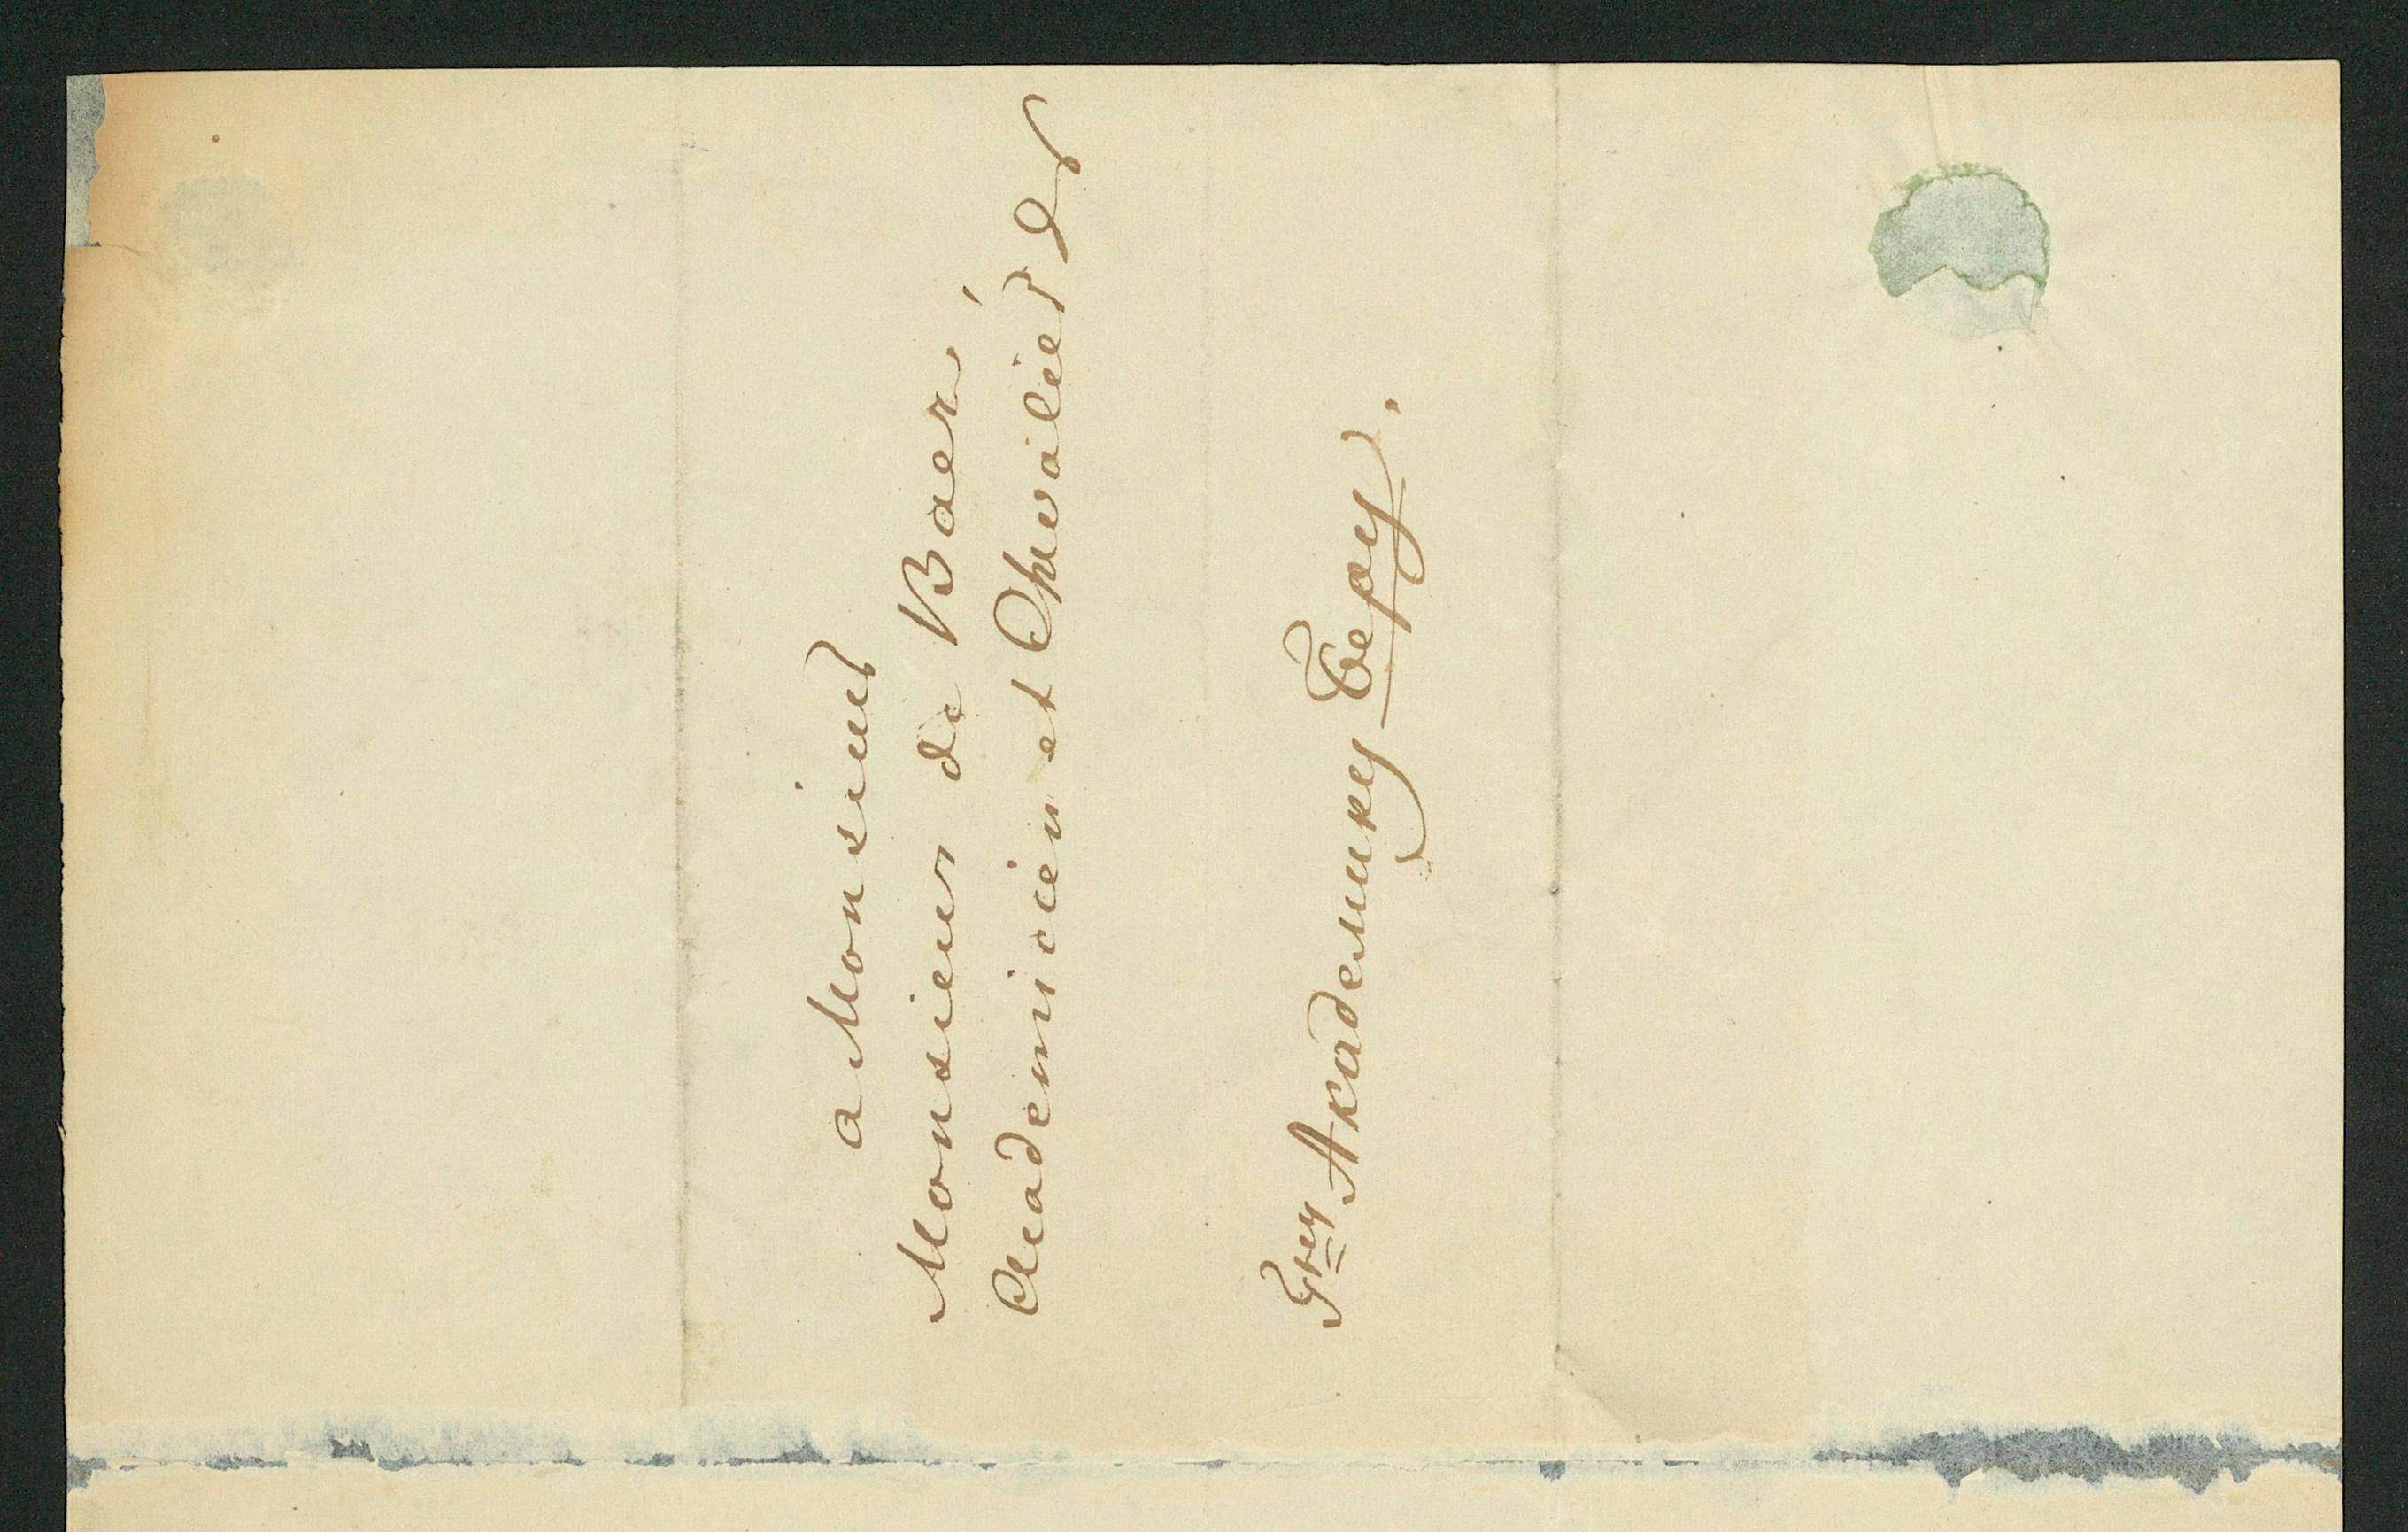 a Monsieur
Monsieur de Baer,
Academicien et Chevalier &
Гну Академику Беру.